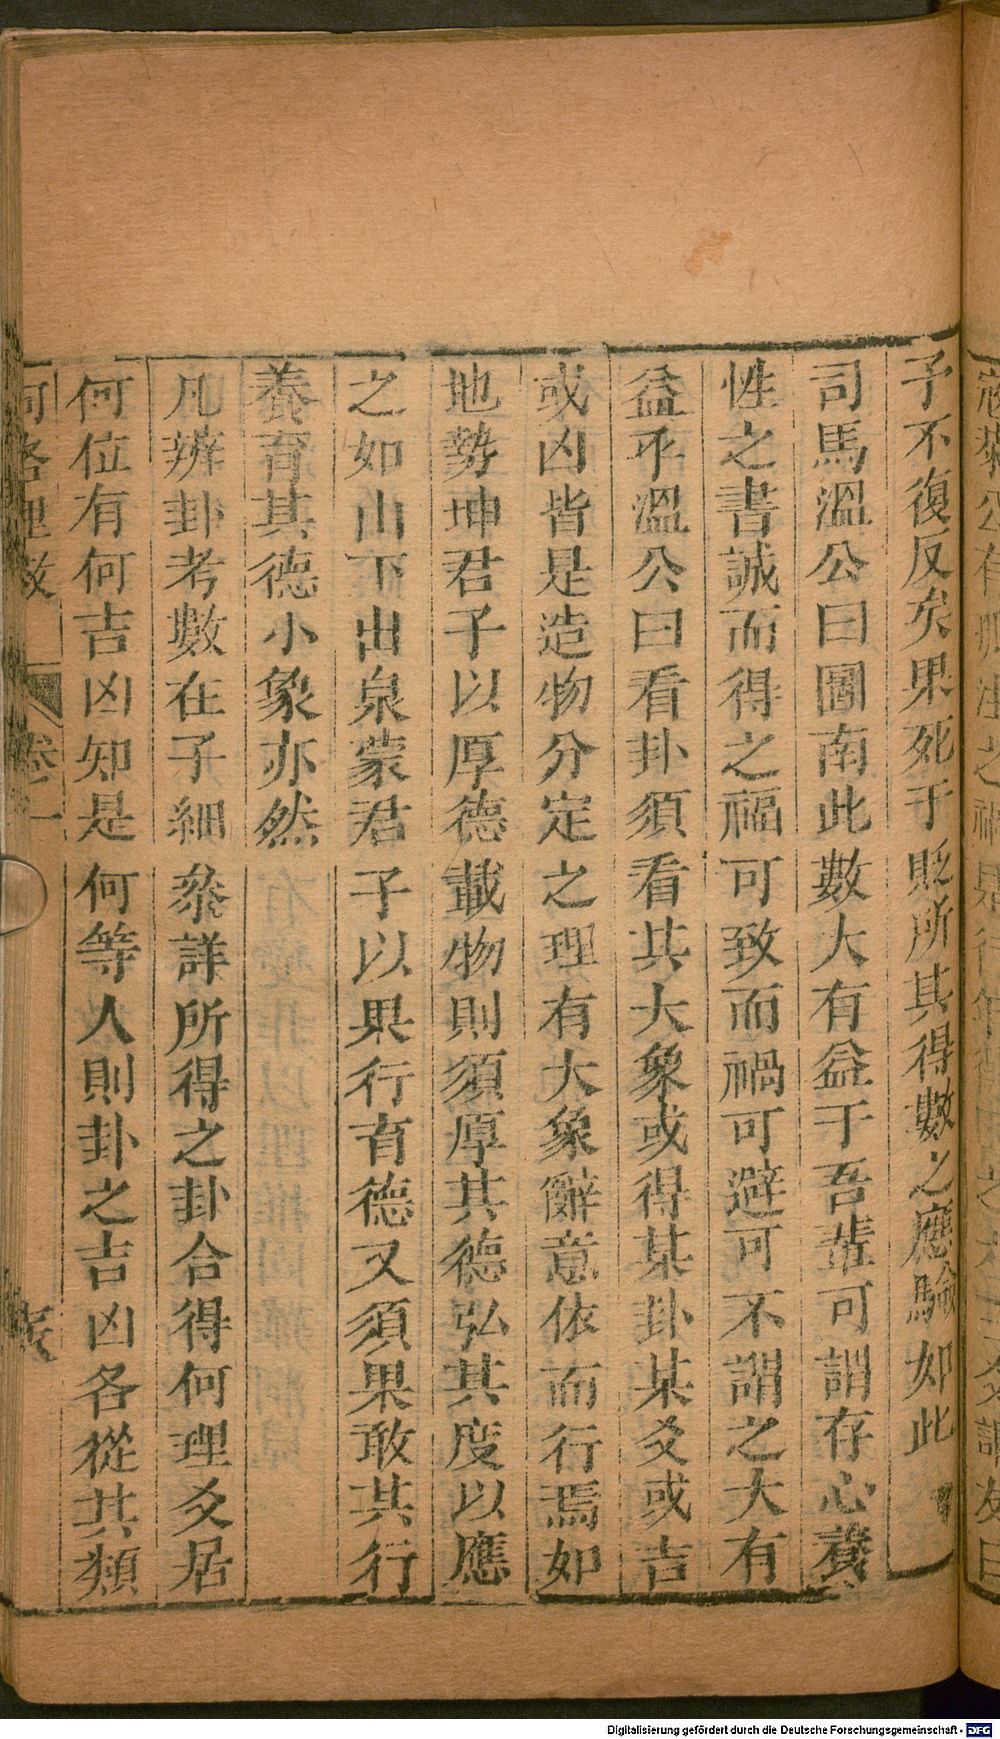 予不復反矣果死于貶所其得數之應驗如此
司馬溫公曰圖南此數大有益于吾輩可謂存心養
性之書誠而得之福可致而禍可避可不謂之大有
益乎溫公曰看卦須看其大象或得某卦某爻或吉
或凶皆是造物分定之理有大象辭意依而行焉如
地勢坤君子以厚德載物則須厚其德弘其度以應
之如山下出泉蒙君子以果行育德又須果敢其行
養育其德小象亦然
凡辨卦考數在子細叅詳所得之卦合得何理爻居
何位有何吉凶知是何等人則卦之吉凶各從其類
河洛理數 卷一
Digitalisierung gefördert durch die Deutsche Forschungsgemeinschaft - DFG